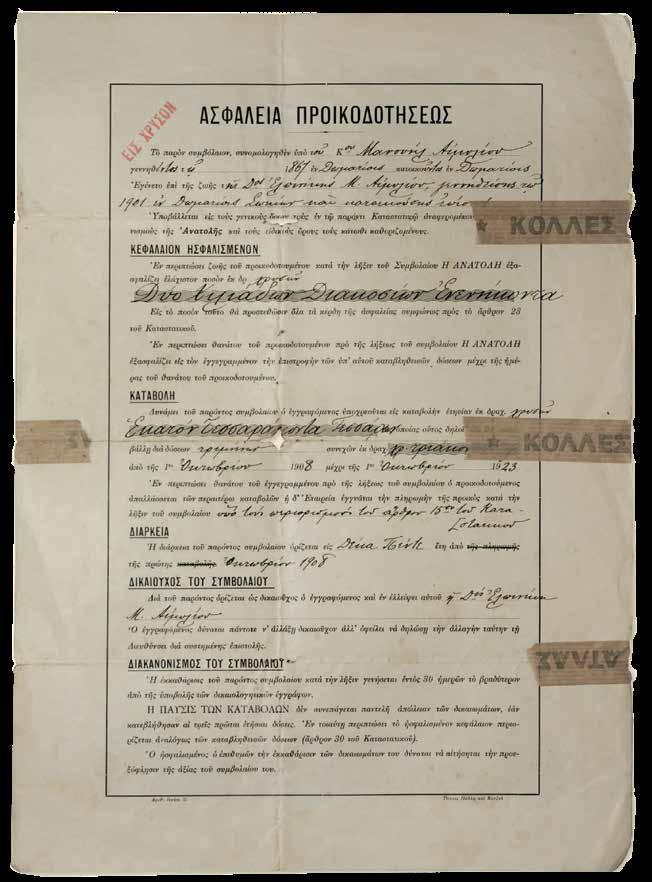 ΑΣΦΑΛΕΙΑ ΠΡΟΙΚΟΔΟΤΗΣΕΩΣ
ΕΙΣ ΧΡΥΣΟΝ
Τὸ παρὸν συμβόλαιον, συνομολογηθὲν ὑπὸ τοῦ Κου Μανουὴλ Αἰμιλίου
γεννηθέντος τῷ 1867 ἐν Δωματίοις κατοικοῦντος ἐν Δωματίοις
Ἐγένετο ἐπὶ τῆς ζωῆς τῆς Δος Ἐλπινίκης Μ. Αἰμιλίου, γεννηθείσης τῷ
1901 ἐν Δωματίοις Σωκίων καὶ κατοικούσης
Ὑποβάλλεται εἰς τοὺς γενικοὺς ὅρους τοὺς ἐν τῷ παρόντι Καταστατικῷ ἀναφερομένου
νισμοὺς τῆς Ἀνατολῆς καὶ τοὺς εἰδικοὺς ὅρους τοὺς κάτωθι καθοριζομένους.
ΚΟΛΛΕΣ
ΚΕΦΑΛΑΙΟΝ ΗΣΦΑΛΙΣΜΕΝΟΝ
Ἐν περιπτώσει ζωῆς τοῦ προικοδοτουμένου κατὰ τὴν λῆξιν τοῦ Συμβολαίου Η ΑΝΑΤΟΛΗ ἐξα-
σφαλίζει ἐλάχιστον ποσὸν ἐκ δρ. χρυσῶν
Δύο Χιλιάδων Διακοσίων Ἐνενήκοντα
Εἰς τὸ ποσὸν τοῦτο θὰ προστεθῶσιν ὅλα τὰ κέρδη τῆς ἀσφαλείας συμφώνως πρὸς τὸ ἄρθρον 23
τοῦ Καταστατικοῦ.
Ἐν περιπτώσει θανάτου τοῦ προικοδοτουμένου πρὸ τῆς λήξεως τοῦ συμβολαίου Η ΑΝΑΤΟΛΗ
ἐξασφαλίζει εἰς τὸν ἐγγεγραμμένον τὴν ἐπιστροφὴν τῶν ὑπ' αὐτοῦ καταβληθεισῶν δόσεων μέχρι τῆς ἡμέ-
ρας τοῦ θανάτου τοῦ προικοδοτουμένου.
ΚΑΤΑΒΟΛΗ
Δυνάμει τοῦ παρόντος συμβολαίου ὁ ἐγγραφόμενος ὑποχρεοῦται εἰς καταβολὴν ἐτησίαν ἐκ δραχ. χρυσῶν
Ἑκατὸν Τεσσαράκοντα Τεσσάρων ὁποίας αὗτος δηλοῖ
βάλλῃ διὰ δόσεων τριμήνων συνεχῶν ἐκ δραχ.
ΚΟΛΛΕΣ
ἀπὸ τῆς 1ης Ὀκτωβρίου 1908 μέχρι τῆς 1ης Ὀκτωβρίου 1923
Ἐν περιπτώσει θανάτου τοῦ ἐγγεγραμμένου πρὸ τῆς λήξεως τοῦ συμβολαίου ὁ προικοδοτούμενος
ἀπαλλάσσεται τῶν περαιτέρω καταβολῶν ἡ δ' Ἑταιρεία ἐγγυᾶται τὴν πληρωμὴν τῆς προικὸς κατὰ τὴν
λῆξιν τοῦ συμβολαίου ὑπὸ τοὺς περιορισμοὺς τοῦ ἄρθρου 15ου τοῦ Κατα-
στατικοῦ
ΔΙΑΡΚΕΙΑ
Ἡ διάρκεια τοῦ παρόντος συμβολαίου ὁρίζεται εἰς Δέκα Πέντε ἔτη ἀπὸ τῆς πληρωμῆς
τῆς πρώτης καταβολῆς Ὀκτωβρίου 1908
ΔΙΚΑΙΟΥΧΟΣ ΤΟΥ ΣΥΜΒΟΛΑΙΟΥ
Διὰ τοῦ παρόντος ὁρίζεται ὡς δικαιοῦχος ὁ ἐγγραφόμενος καὶ ἐν ἐλλείψει αὐτοῦ ἡ Δος Ἐλπινίκη
Μ. Αἰμιλίου
Ὁ ἐγγραφόμενος δύναται πάντοτε ν' ἀλλάξῃ δικαιοῦχον ἀλλ' ὀφείλει νὰ δηλώσῃ τὴν ἀλλαγὴν ταύτην τῇ
Διευθύνσει διὰ συστημένης ἐπιστολῆς.
ΑΤΛΑΣ
ΔΙΑΚΑΝΟΝΙΣΜΟΣ ΤΟΥ ΣΥΜΒΟΛΑΙΟΥ
Ἡ ἐκκαθάρισις τοῦ παρόντος συμβολαίου κατὰ τὴν λῆξιν γενήσεται ἐντὸς 30 ἡμερῶν τὸ βραδύτερον
ἀπὸ τῆς ὑποβολῆς τῶν δικαιολογητικῶν ἐγγράφων.
Η ΠΑΥΣΙΣ ΤΩΝ ΚΑΤΑΒΟΛΩΝ δὲν συνεπάγεται παντελῆ ἀπώλειαν τῶν δικαιωμάτων, ἐὰν
κατεβλήθησαν αἱ τρεῖς πρῶται ἐτήσιαι δόσεις. Ἐν τοιαύτῃ περιπτώσει τὸ ἠσφαλισμένον κεφάλαιον περιο-
ρίζεται ἀναλόγως τῶν καταβληθεισῶν δόσεων (ἄρθρον 30 τοῦ Καταστατικοῦ).
Ὁ ἠσφαλισμένος ὁ ἐπιθυμῶν τὴν ἐκκαθάρισιν τῶν δικαιωμάτων του δύναται νὰ αἰτήσηται τὴν προε-
ξόφλησιν τῆς ἀξίας τοῦ συμβολαίου του.